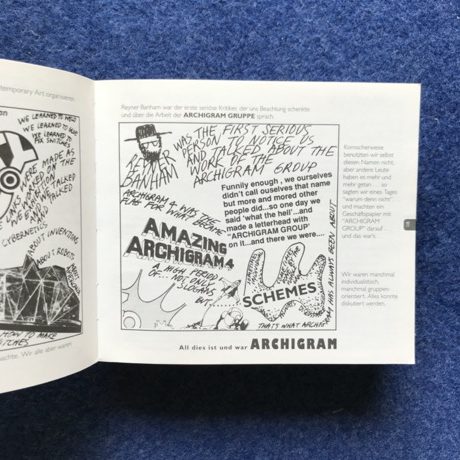 temporary Art organisieren.
WE LEARNED TO
WE LEARNED TO
FIX SWITCHES
MADE AS
CYBERNETIC
ABOUT INVENTORS
ABOUT ROBOTS
HOW TO MAKE
SWITCHES
machte. Wir alle aber waren
Reyner Banham war der erste seriöse Kritiker, der uns Beachtung schenkte
und über die Arbeit der ARCHIGRAM GRUPPE sprach.
REYNER
BANHAM
WAS THE FIRST SERIOUS
PERSON TO NOTICE US
AND TALKED ABOUT THE
WORK OF THE
ARCHIGRAM GROUP
Funnily enough, we ourselves
didn't call ouselves that name
but more and mored other
people did...so one day we
said 'what the hell'...and
made a letterhead with
"ARCHIGRAM GROUP"
on it...and there we were....
ARCHIGRAM 4 WAS THE
FLAG FOR WHAT BECAME
AMAZING
ARCHIGRAM 4
A HIGH PERIOD
OF... NO, ONLY
SLOGANS
BUT.....
SCHEMES
THAT'S WHAT ARCHIGRAM HAS ALWAYS BEEN ABOUT
Komischerweise
benutzten wir selbst
diesen Namen nicht,
aber andere Leute
haben es mehr und
mehr getan ... so
sagten wir eines Tages
"warum denn nicht"
und machten ein
Geschäftspapier mit
"ARCHIGRAM
GROUP" darauf ...
und das war's.
Wir waren manchmal
individualistisch,
manchmal gruppen-
orientiert. Alles konnte
diskutiert werden.
All dies ist und war ARCHIGRAM